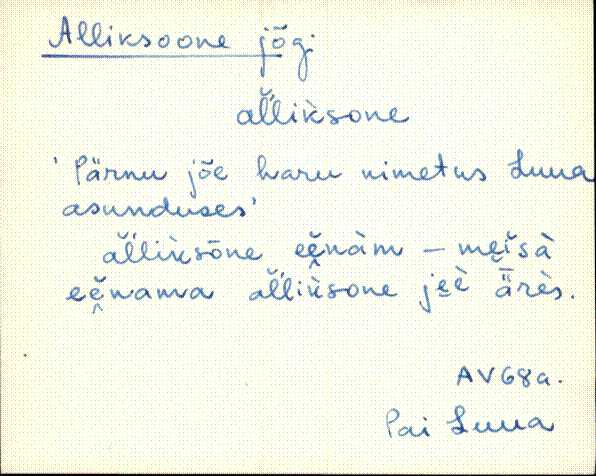 Alliksoone jõgi
al̆'lik̀sone
'Pärnu jõe haru nimetus Luua
asunduses'
al̆'lik̀sōne eḙ̆nàm – mẹĭsà
eḙ̆nama al̆'lik̀sone jẹè ä̆̄rès.
AV68a.
Pai Luua